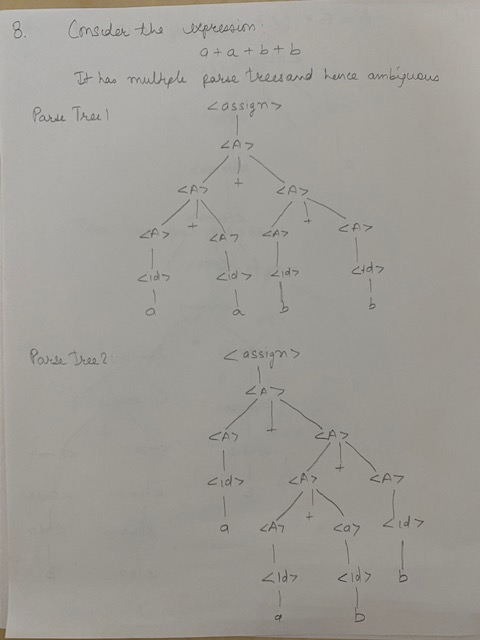 8. Consider the expression.
a + a + b + b
It has multiple parse trees and hence ambiguous
Parse Tree 1
<assign>
<A>
<A> + <A>
<A> + <A> <A> + <A>
<id> <id> <id> <id>
a a b b
Parse Tree 2
<assign>
<A>
<A> + <A>
<id> <A> + <A>
a <A> + <a> <id>
<id> <id> b
a b